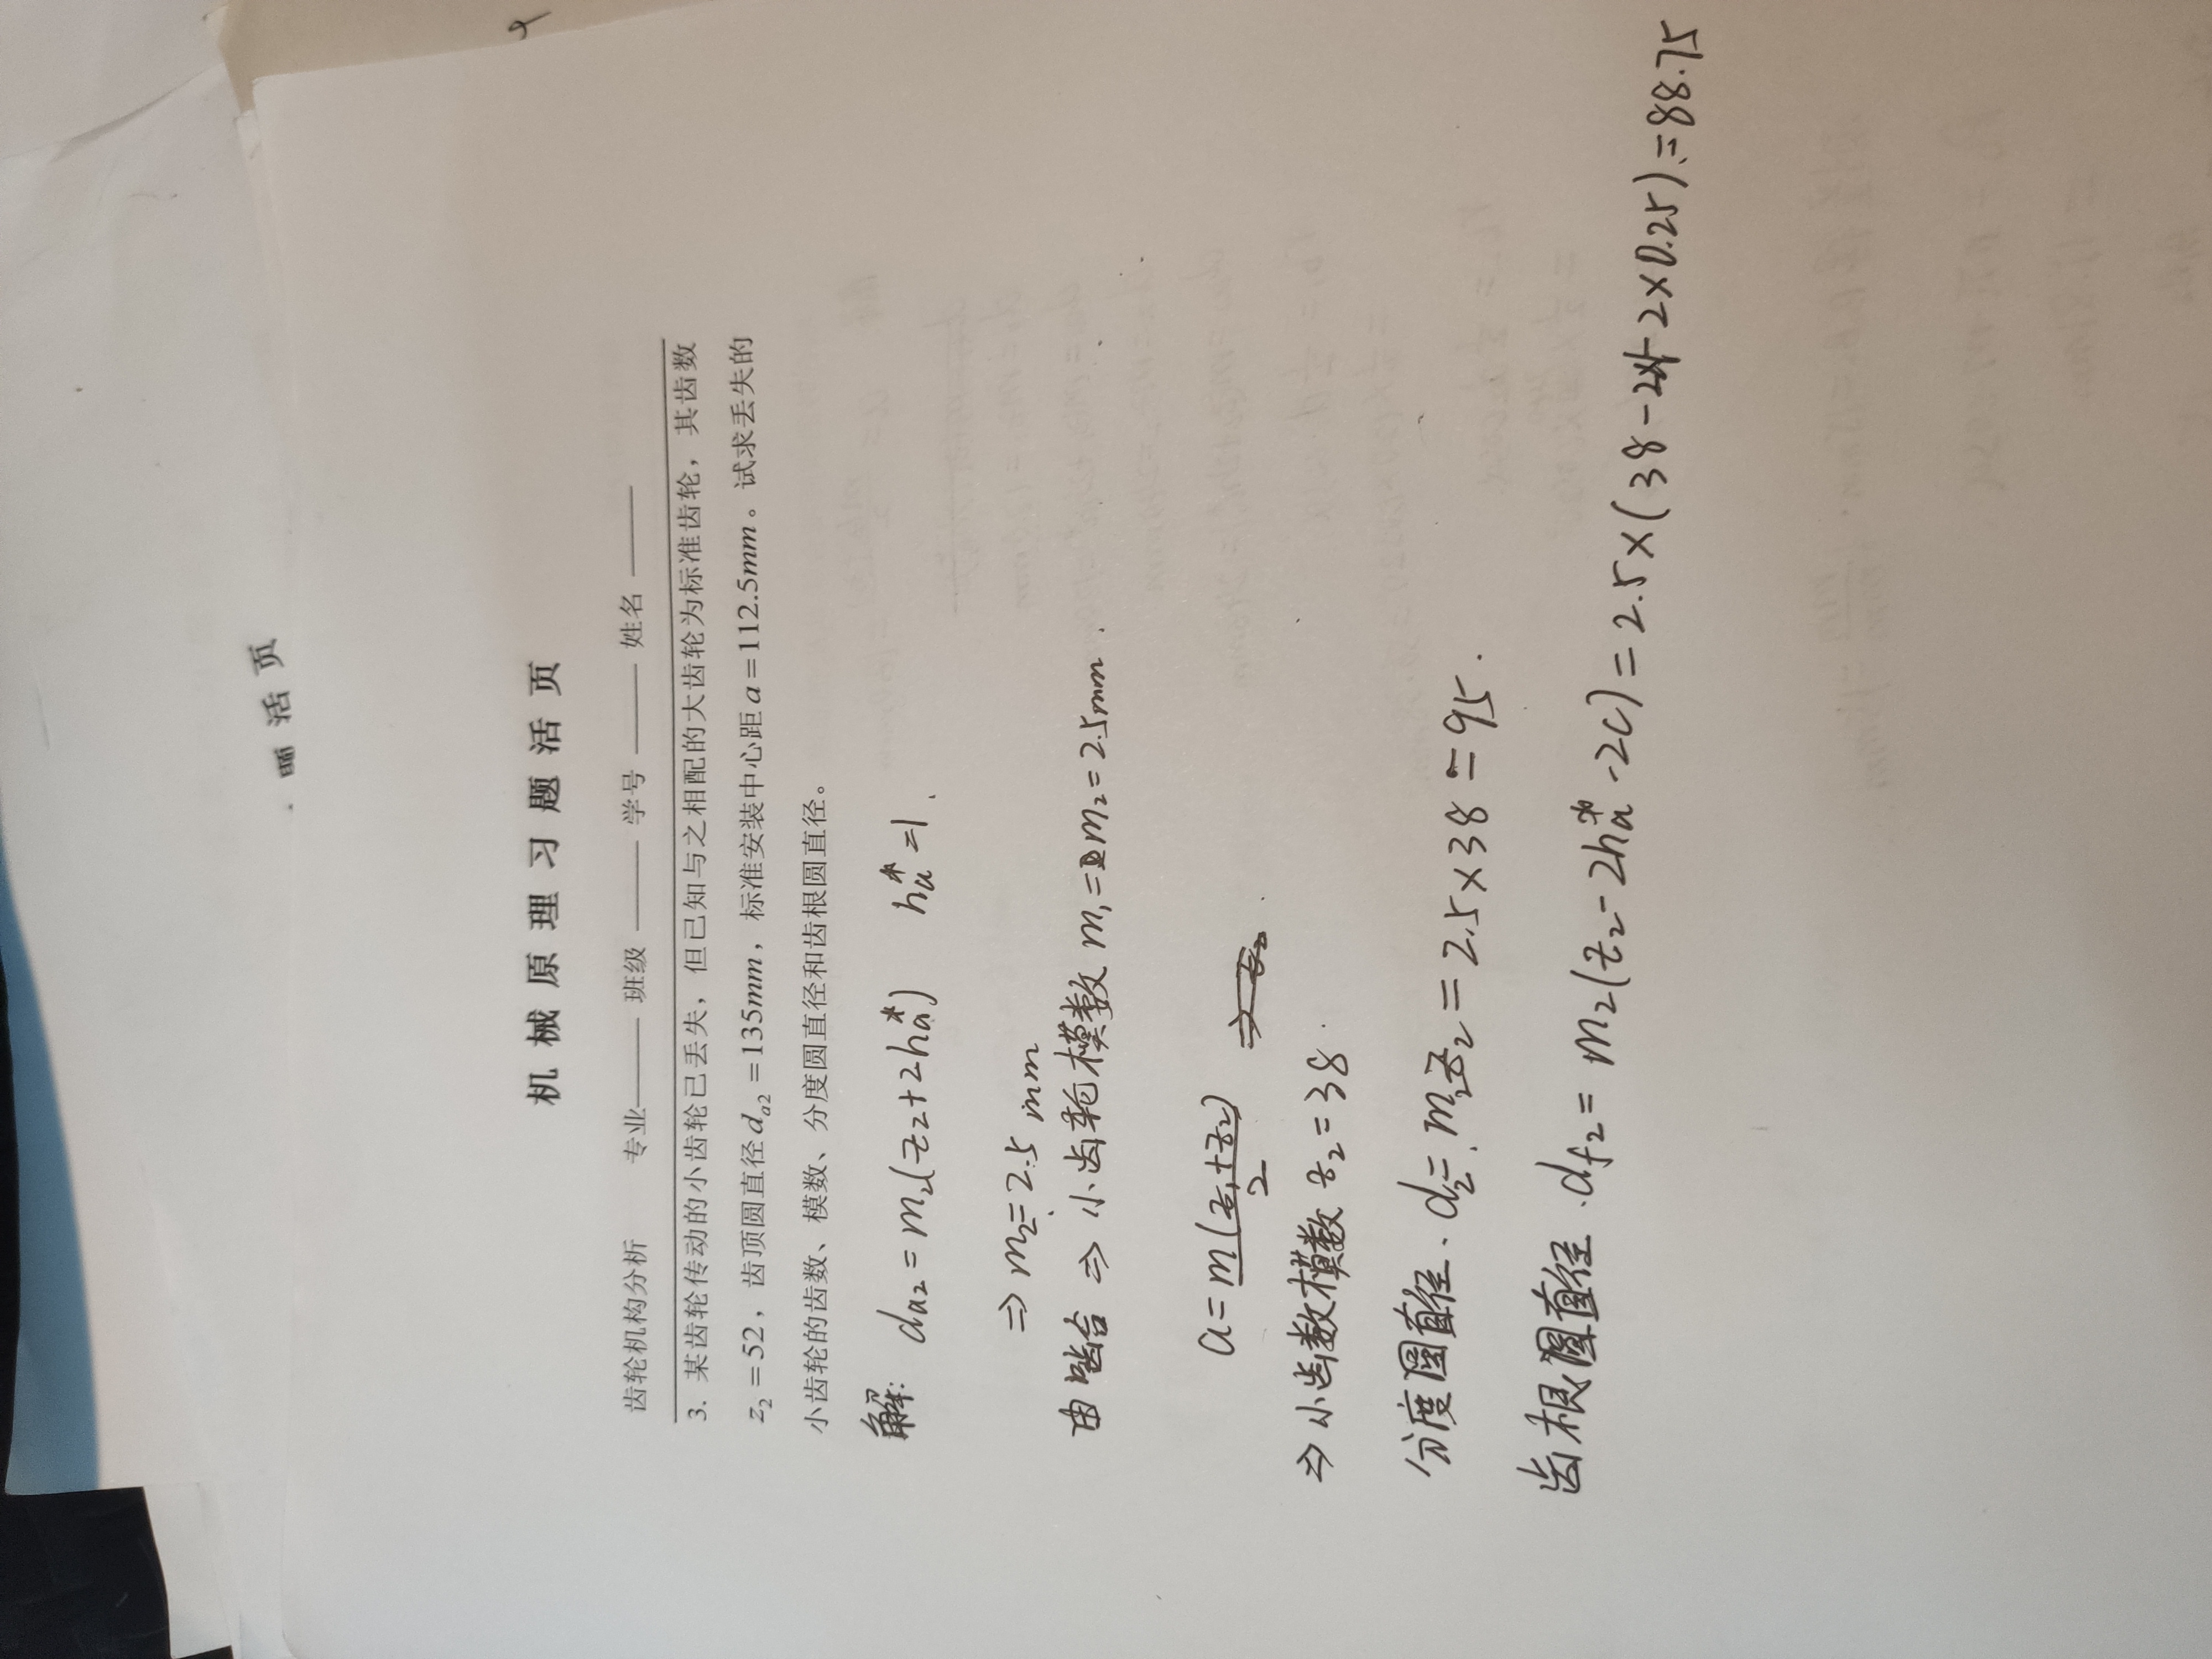 习题活页
机械原理习题活页
齿轮机构分析 专业____ 班级____ 学号____ 姓名____
3. 某齿轮传动的小齿轮已丢失，但已知与之相配的大齿轮为标准齿轮，其齿数
z₂=52，齿顶圆直径dₐ₂=135mm，标准安装中心距a=112.5mm。试求丢失的
小齿轮的齿数、模数、分度圆直径和齿根圆直径。
解: da₂=m₂(z₂+2ha*) ha*=1
⇒ m₂=2.5mm
由啮合 ⇒ 小齿轮模数 m₁=m₂=2.5mm.
a=m(z₁+z₂)/2 ⇒ z₂
⇒ 小齿数模数 z₂=38.
分度圆直径. d₂=m₂z₂=2.5×38=95.
齿根圆直径.df₂=m₂(z₂-2ha*-2c)=2.5×(38-2×1-2×0.25)=88.75